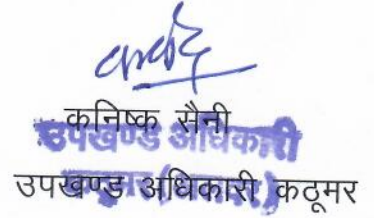 कनिष्क सैनी
उपखण्ड अधिकारी
उपखण्ड अधिकारी कठूमर